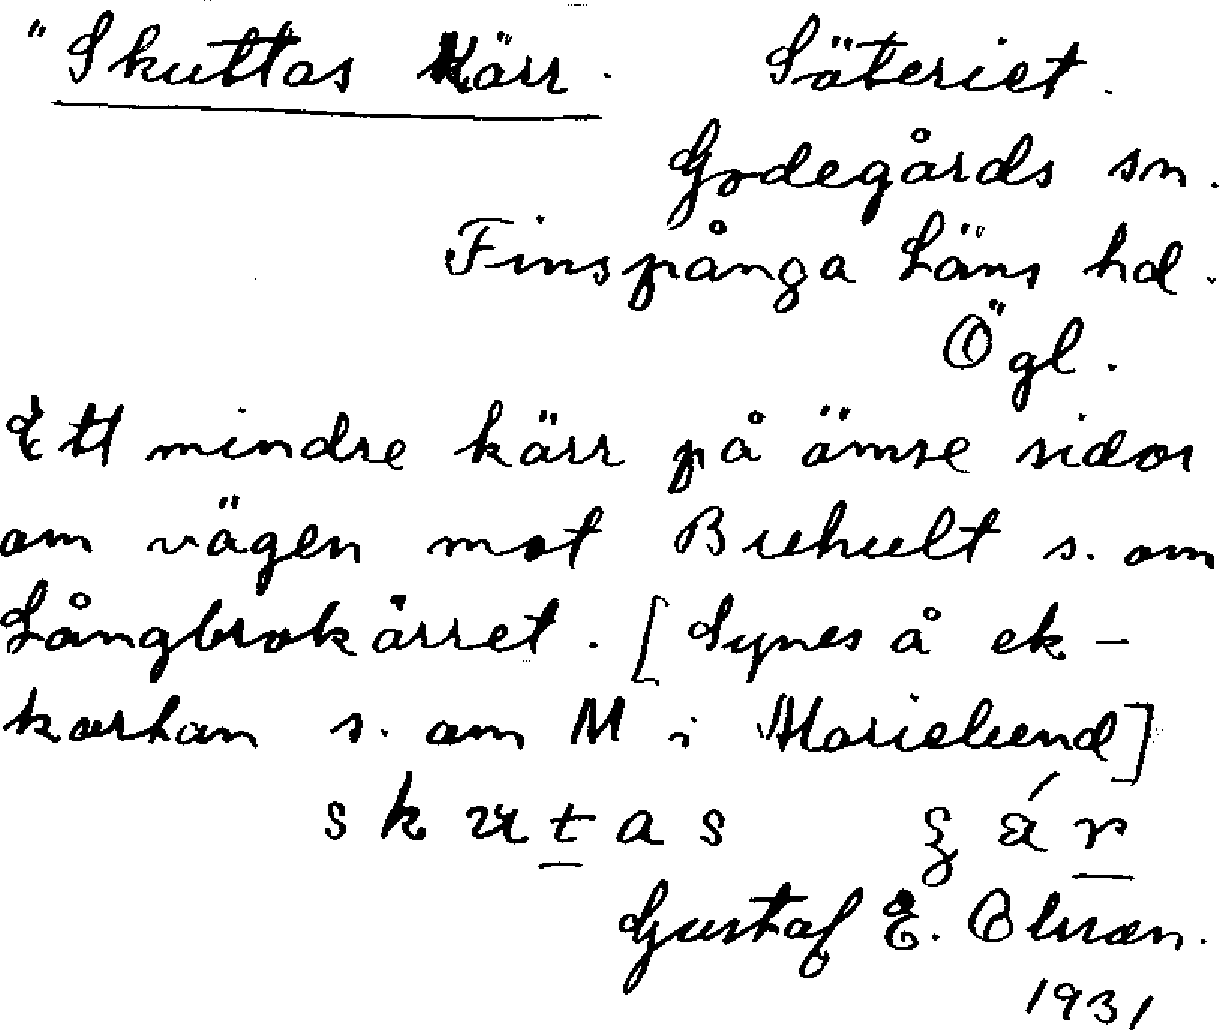 "Skuttas Kärr. Säteriet.
Godegårds sn.
Finspånga Läns hd.
Ögl.
Ett mindre kärr på ömse sidor
om vägen mot Buhult s. om
Långbrokärret. [Synes å ek-
kartan s. om M i Marielund]
skutas
Gustaf E. Olsson.
1931